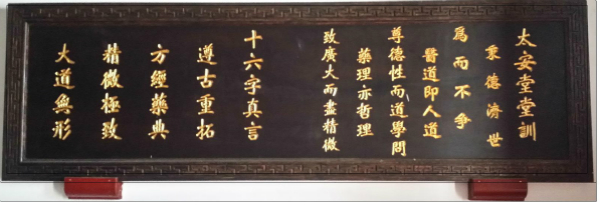 太安堂堂訓
秉德济世
為而不争
醫道即人道
尊德性而道學問
藥理亦哲理
致廣大而盡精微
十六字真言
遵古重拓
方經藥典
精微極致
大道無形